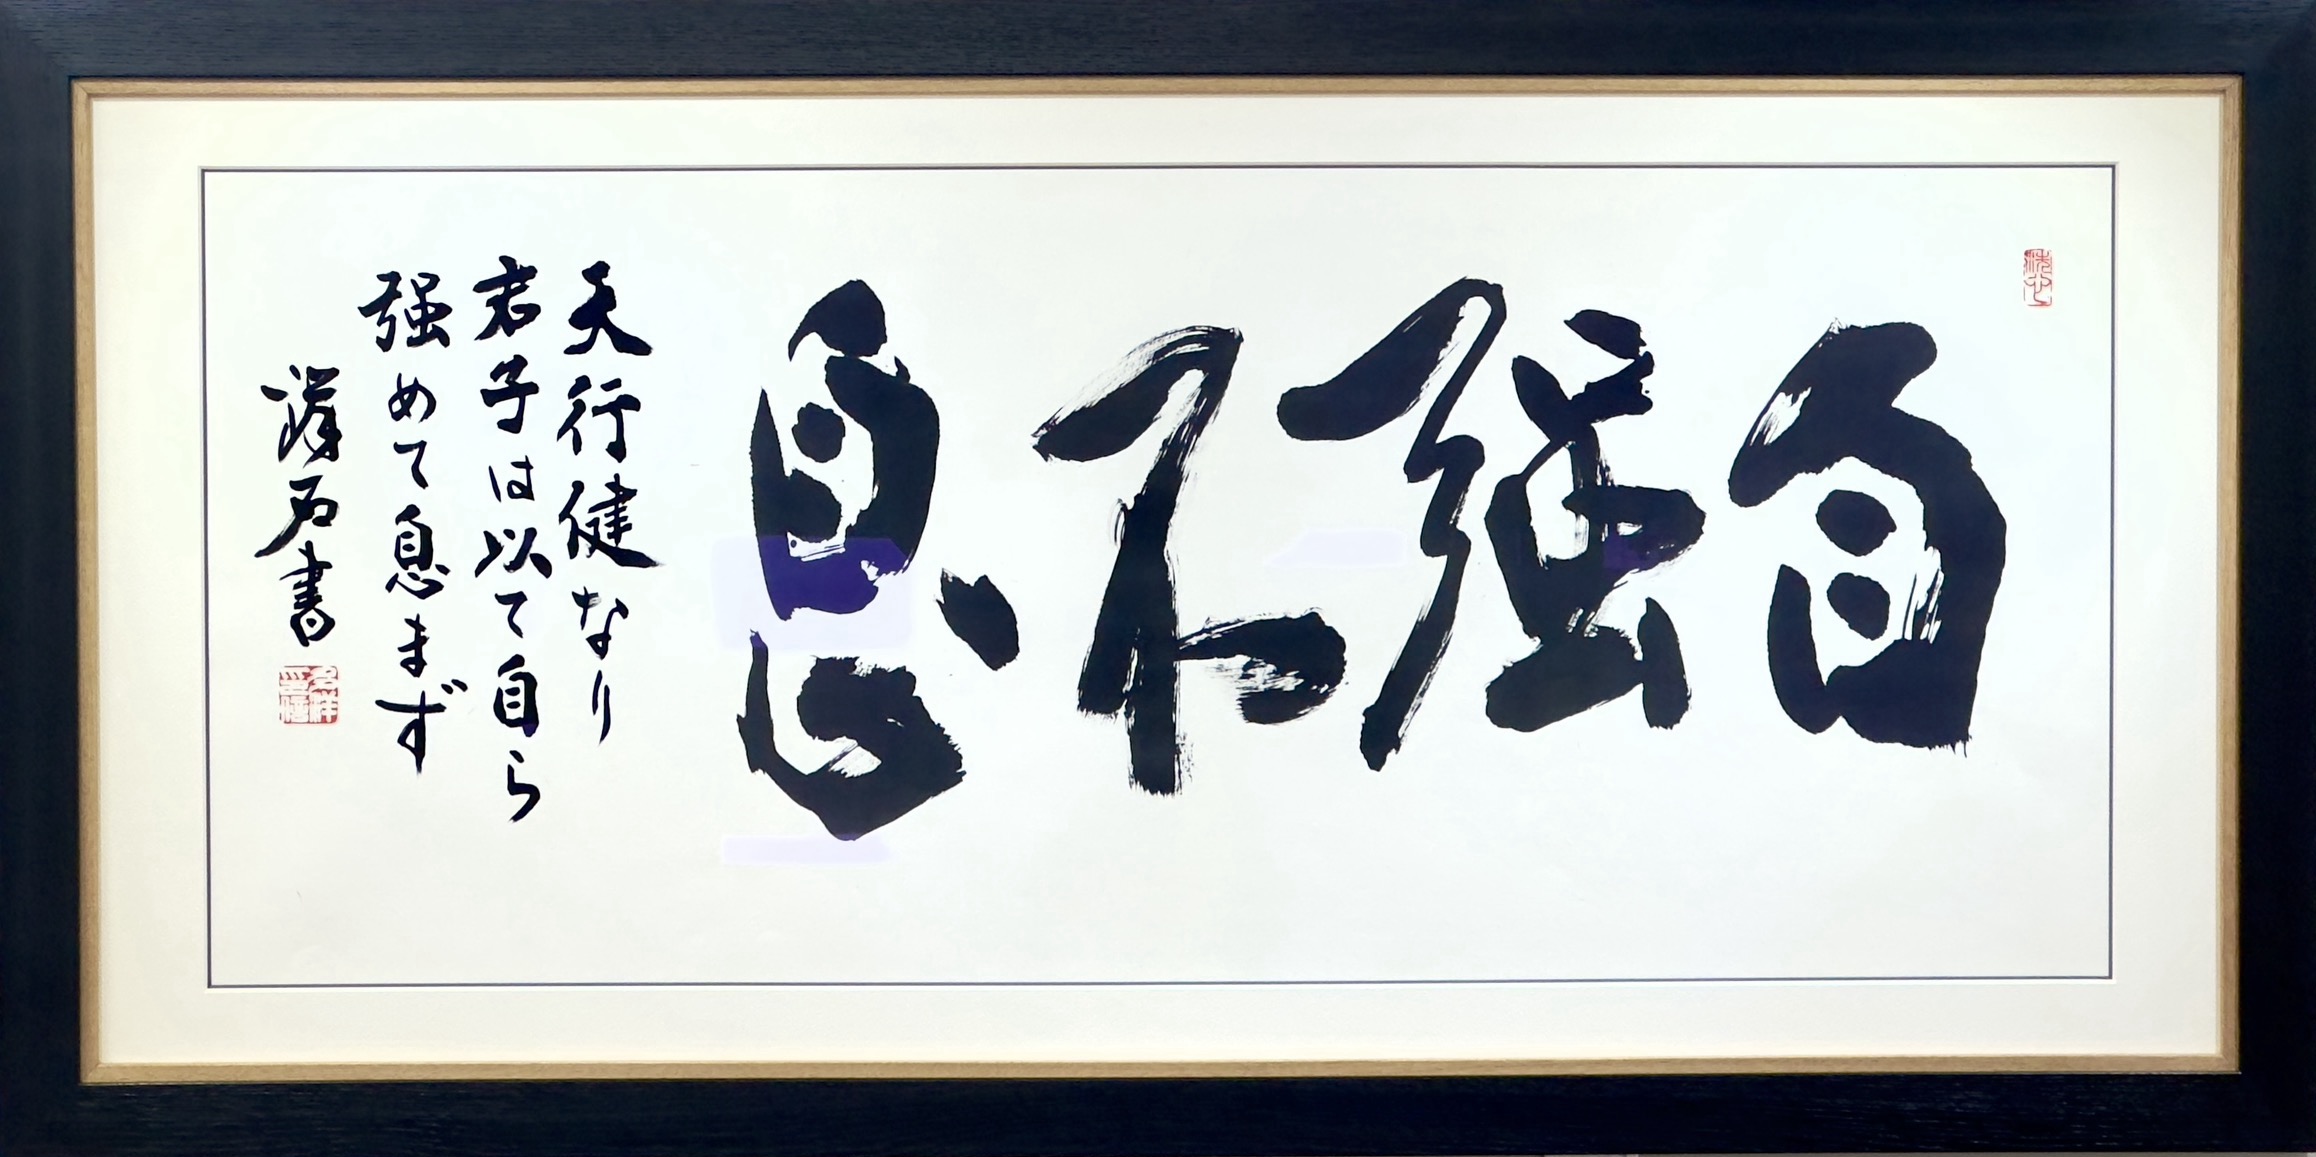 自強不息
天行健なり
君子は以て自ら
強めて息まず
石書